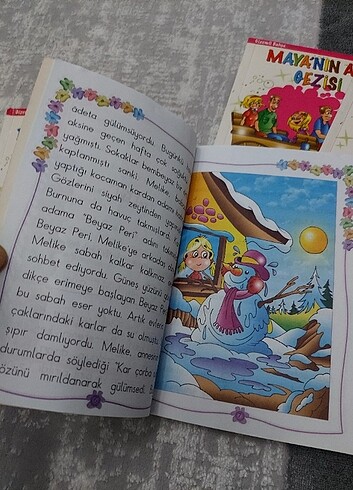 Gizemli Bahçe
MAYA'NIN A
GEZİSİ
âdeta gülümsüyordu. Bugünkü
aksine geçen hafta çok soğuk
yağmıştı. Sokaklar bembeyaz bir
kaplanmıştı sanki. Melike
yaptığı kocaman kardan adam
Gözlerini siyah zeytinden yapm
Burnuna da havuç takmışlard. Ka
adama "Beyaz Peri" adın takm
Beyaz Peri, Melike'ye arkadaş o
Melike sabah kalkar kalkmaz
sohbet ediyordu. Güneş yüzünü gö
dikçe erimeye başlayan Beyaz Per
bu sabah eser yoktu. Artık evleri
çaklarındaki karlar da su olmuştu
şıpır damlıyordu. Melike, annesin
durumlarda söylediği 'Kar çorba o
özünü mırıldanarak gülümsedi. B